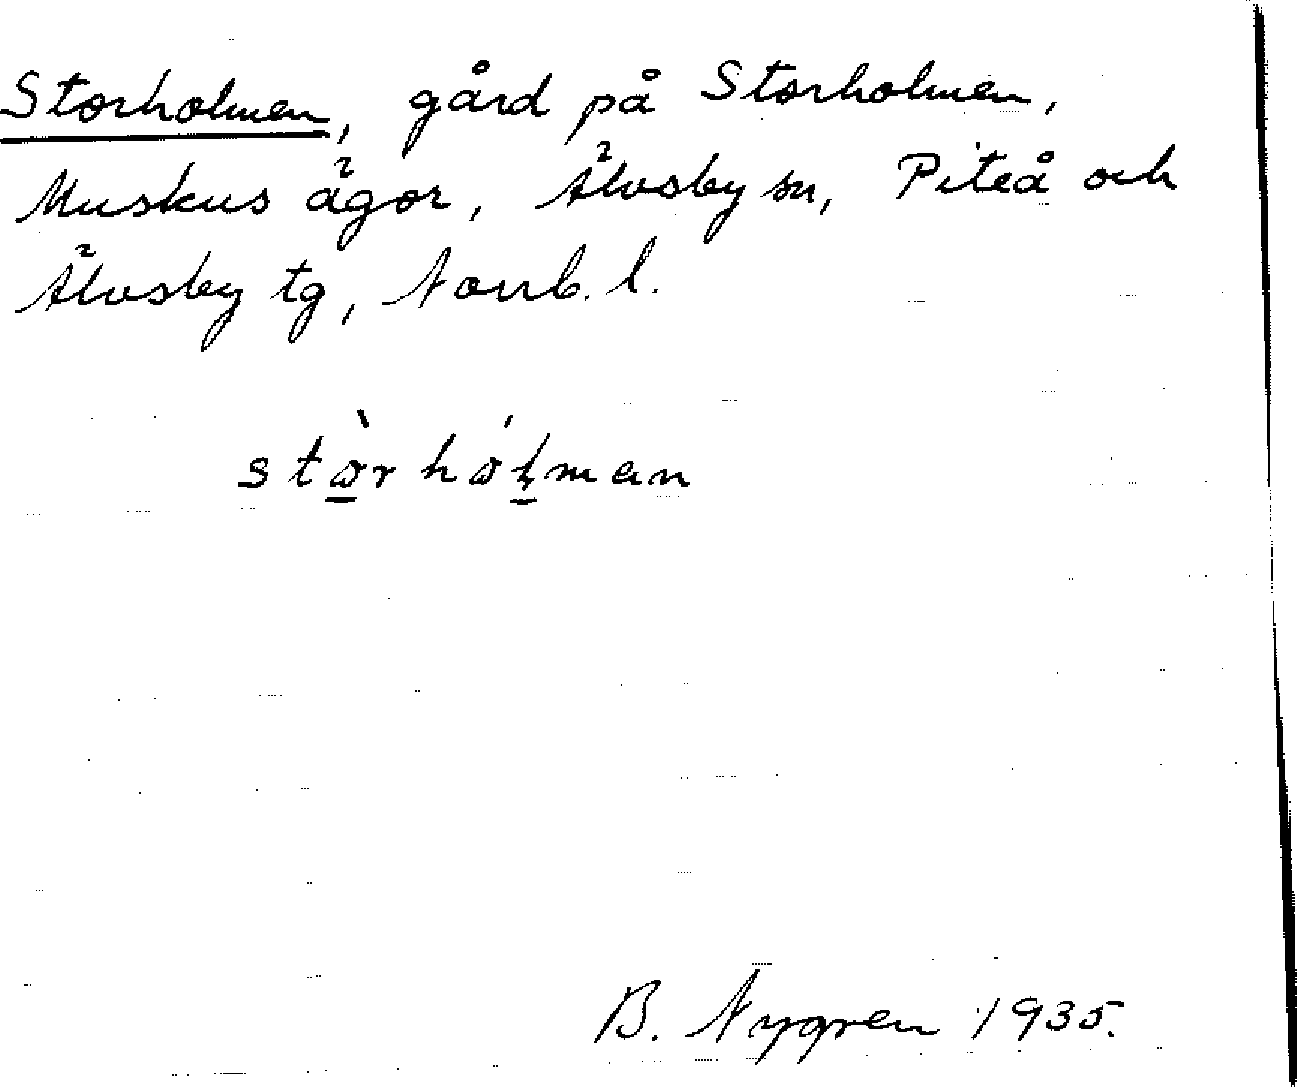 Storholmen, gård på Storholmen,
Muskus ägor, Älvsby sn, Piteå och
Älvsby tg, Norrb. l.
stò̱rhóḻman
B. Nygren 1935.